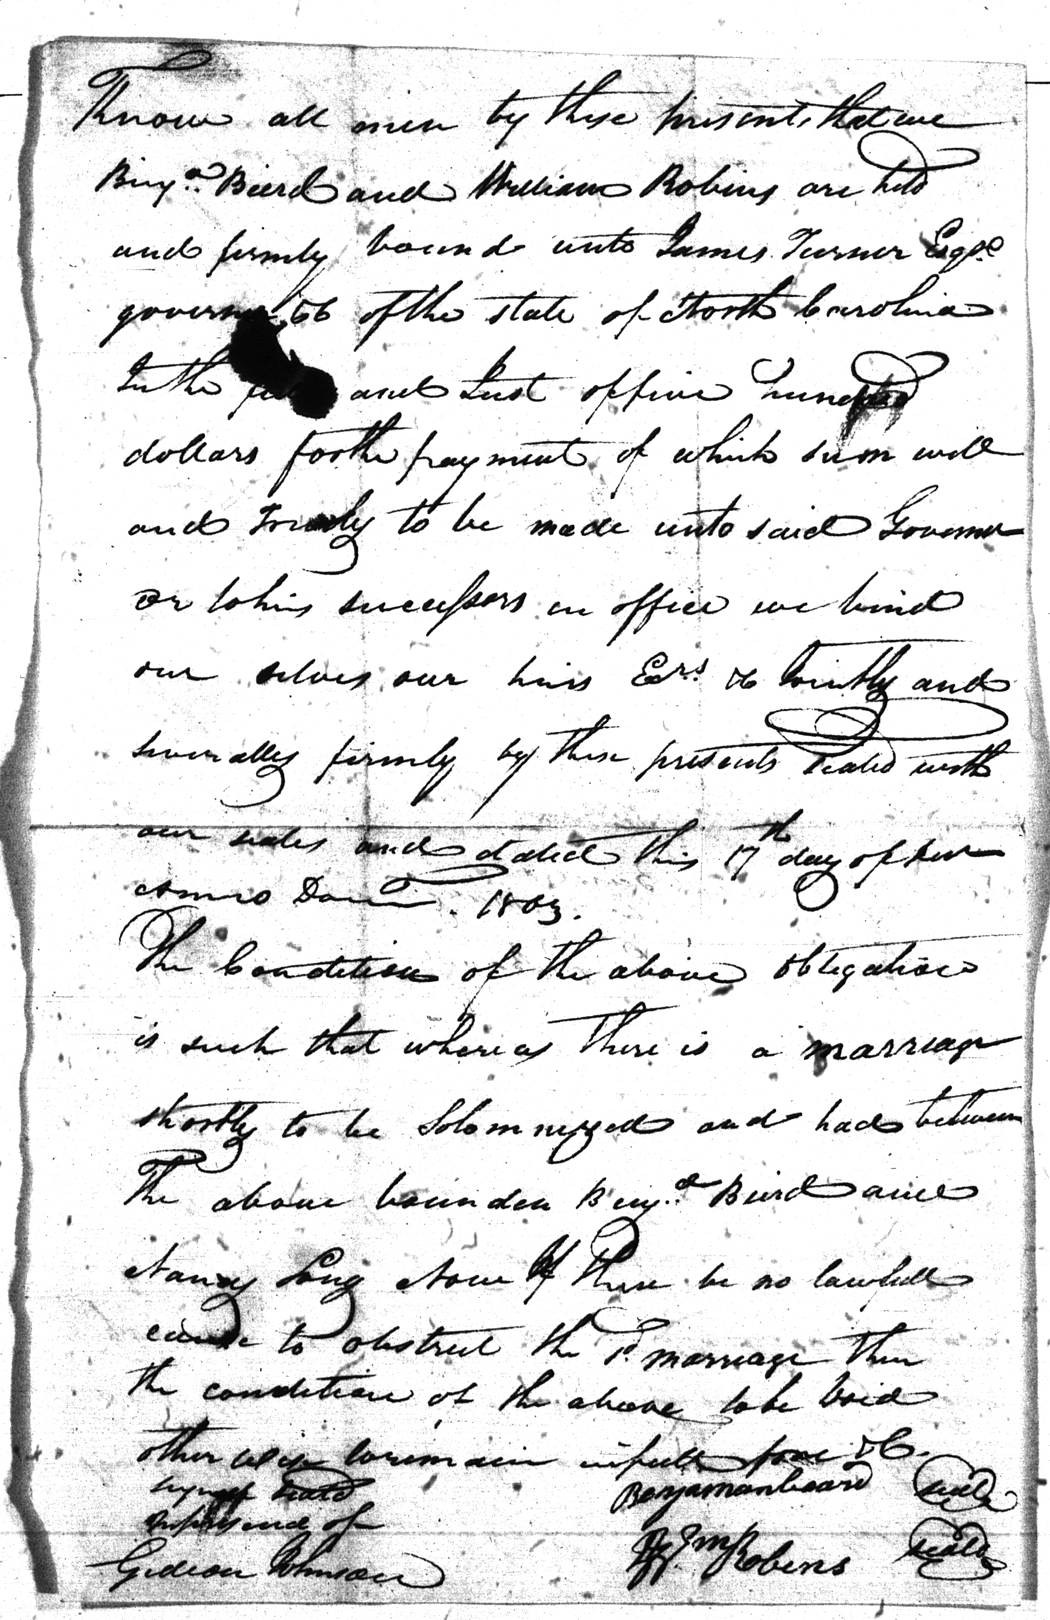 Know all men by these presents that we
Benjn. Beird and William Robins are held
and firmly bound unto James Turner Esqre
governor &c of the state of North Carolina
In the full and Just of five hundred
dollars for the payment of which sum will
and Truely to be made unto said Governor
or to his successors in office we bind
our selves our hiers Ers. &c Jointly and
severally firmly by these presents Sealed with
our seales and dated this 17th day of
Anno Dom. 1803.
The Condition of the above obligation
is such that whereas there is a marriage
shortly to be Solomnezed and had between
The above bounden Benjn. Beird and
Nancy Long Now If There be no lawfull
cause to obstruct the sd. marriage then
the condition of the above to be Void
otherwise to remain in full force &c.
Signed Seald
In presence of
Gideon Johnson
Benjaman beard Seale
Wm Robens Seale